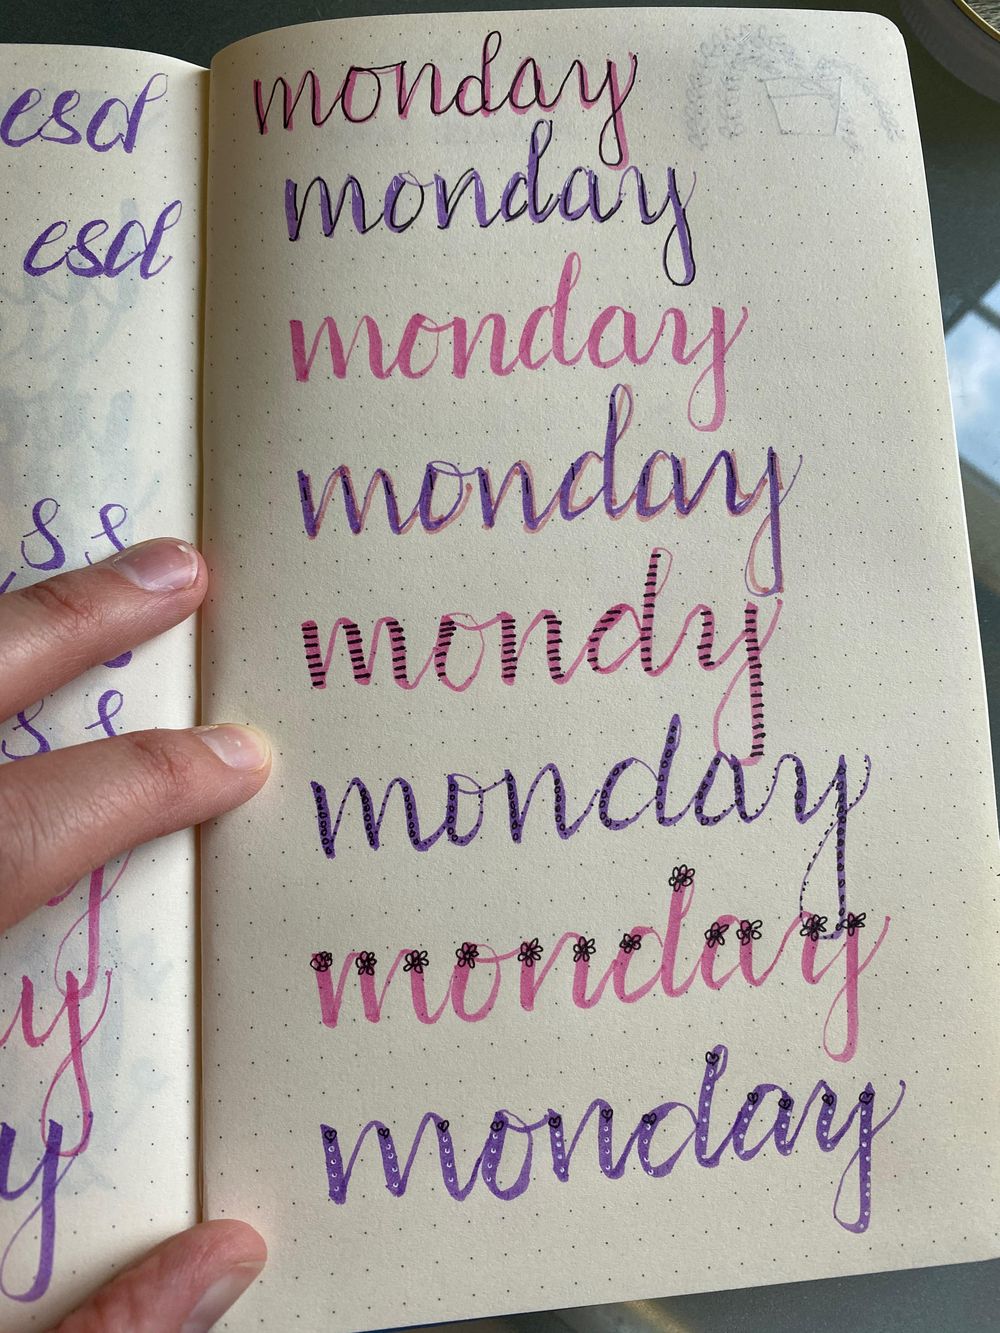 esd
esd
monday
monday
monday
monday
mondy
monday
monday
monday